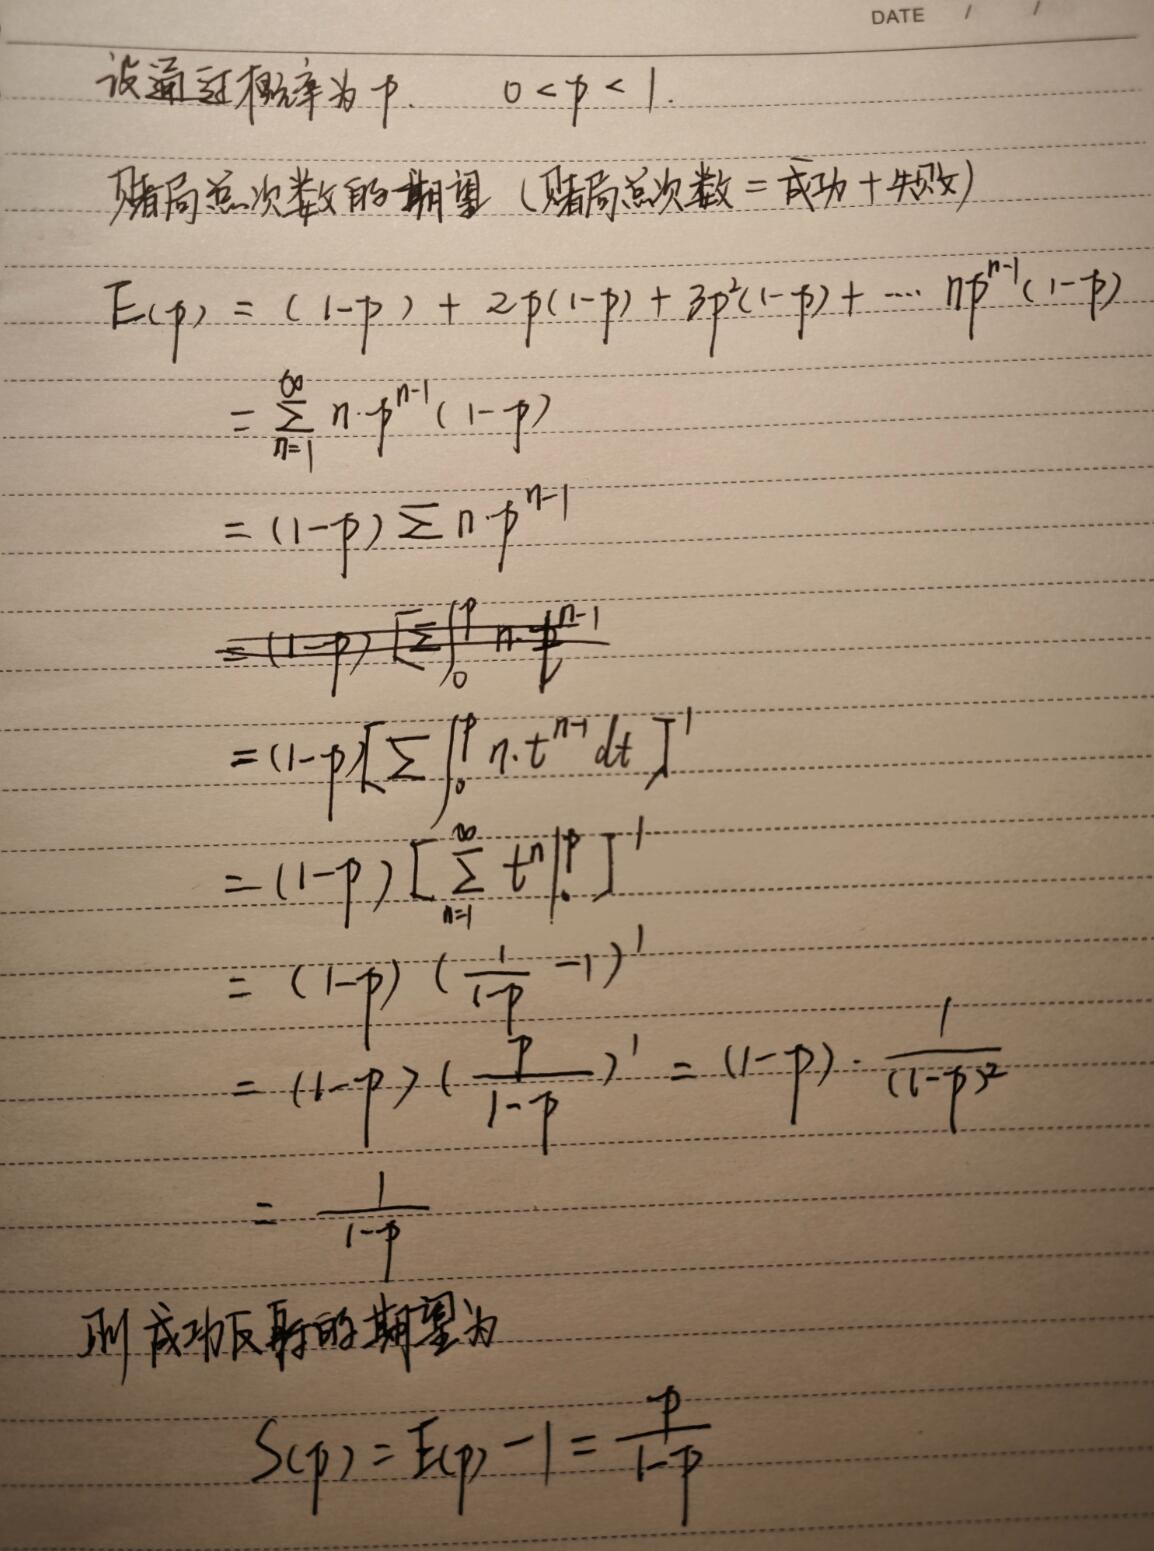 DATE / /
设通过概率为p. 0<p<1.
赌局总次数的期望（赌局总次数=成功+失败）
E(p) = (1-p) + 2p(1-p) + 3p²(1-p) + ···· npⁿ⁻¹(1-p)
= ∞ Σ n=1 n·pⁿ⁻¹(1-p)
= (1-p) Σ n·pⁿ⁻¹
= (1-p) [Σ ∫₀ᵖ n·pⁿ⁻¹
= (1-p) [Σ ∫₀ᵖ n·tⁿ⁻¹ dt]'
= (1-p) [∞ Σ n=1 tⁿ|₀ᵖ]'
= (1-p) (1/(1-p) - 1)'
= (1-p) (p/(1-p))' = (1-p)· 1/(1-p)²
= 1/(1-p)
则成功反射的期望为
S(p) = E(p) - 1 = p/(1-p)